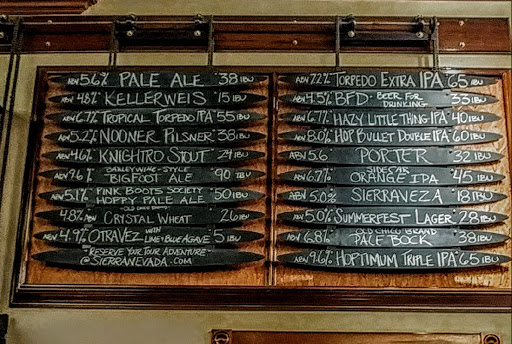 ABV 5.6% PALE ALE 38 IBU
ABV 4.8% KELLERWEIS 15 IBU
ABV 6.7% TROPICAL TORPEDO IPA 55 IBU
ABV 5.2% NOONER PILSNER 38 IBU
ABV 4.6% KNIGHTRO STOUT 24 IBU
BARLEYWINE-STYLE
ABV 9.6% BIGFOOT ALE 90 IBU
PINK BOOTS SOCIETY
ABV 5.1% HOPPY PALE ALE 50 IBU
4.8% ABV CRYSTAL WHEAT 26 IBU
ABV 4.9% OTRAVEZ WITH LIME & BLUE AGAVE 5 IBU
"RESERVE YOUR TOUR ADVENTURE"
@SIERRANEVADA.COM
ABV 7.2% TORPEDO EXTRA IPA 65 IBU
ABV 4.5% BFD BEER FOR DRINKING 35 IBU
ABV 6.7% HAZY LITTLE THING IPA 40 IBU
ABV 8.0% HOP BULLET DOUBLE IPA 60 IBU
ABV 5.6 PORTER 32 IBU
SIDECAR
ABV 6.7% ORANGE IPA 45 IBU
ABV 5.0% SIERRAVEZA 18 IBU
ABV 5.0% SUMMERFEST LAGER 28 IBU
OLD CHICO BRAND
ABV 6.8% PALE BOCK 38 IBU
ABV 9.6% HOPTIMUM TRIPLE IPA 65 IBU